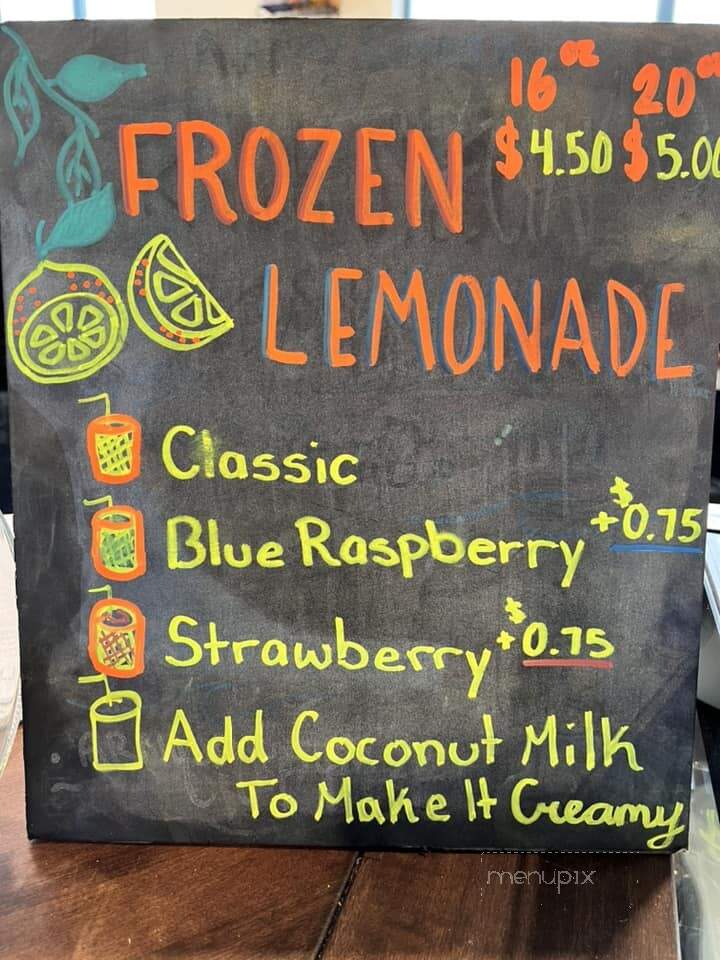 16 oz 20 oz
$4.50 $5.00
FROZEN
LEMONADE
Classic
Blue Raspberry +$0.75
Strawberry +$0.75
Add Coconut Milk
To Make It Creamy
menupix